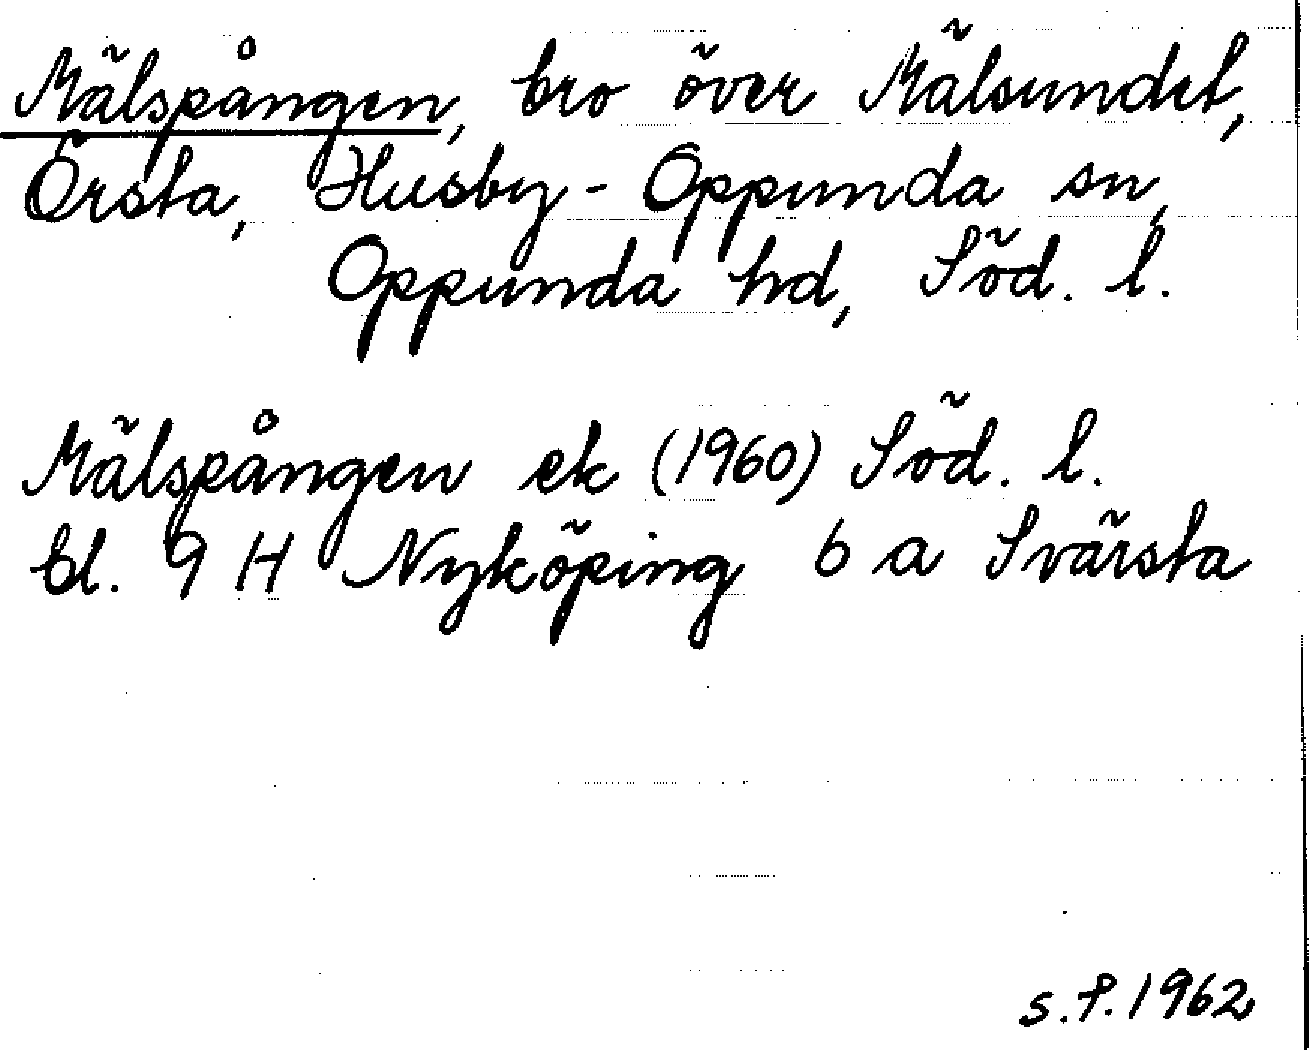 Mälspången, bro över Mälsundet,
Örsta, Husby-Oppunda sn,
Oppunda hd, Söd. l.
Mälspången ek (1960) Söd. l.
bl. 9 H Nyköping 6 a Svärsta
s.f. 1962